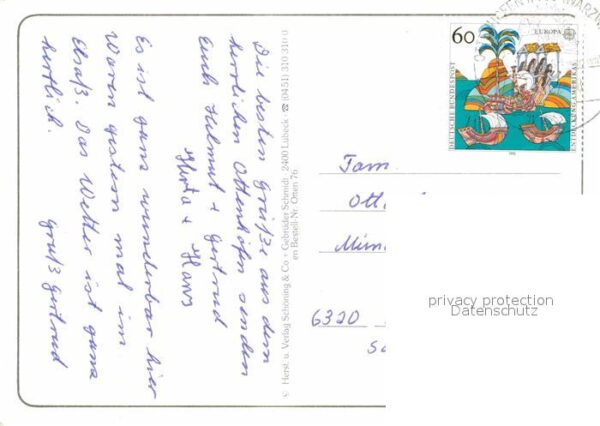 Die besten Grüße aus dem
herrlichen Ottenhöfen senden
Euch Helmut + Gertrud
Herta + Hans
Es ist ganz wunderbar hier
Waren gestern mal im
Elsaß. Das Wetter ist ganz
herrlich.
Gruß Gertrud
© Herst. u. Verlag Schöning & Co + Gebrüder Schmidt, 2400 Lübeck · ☎ (04 51) 310 310
Bestell-Nr. Otten 76
60
EUROPA
DEUTSCHE BUNDESPOST
ENTDECKUNG AMERIKAS
Fam.
6320
privacy protection
Datenschutz